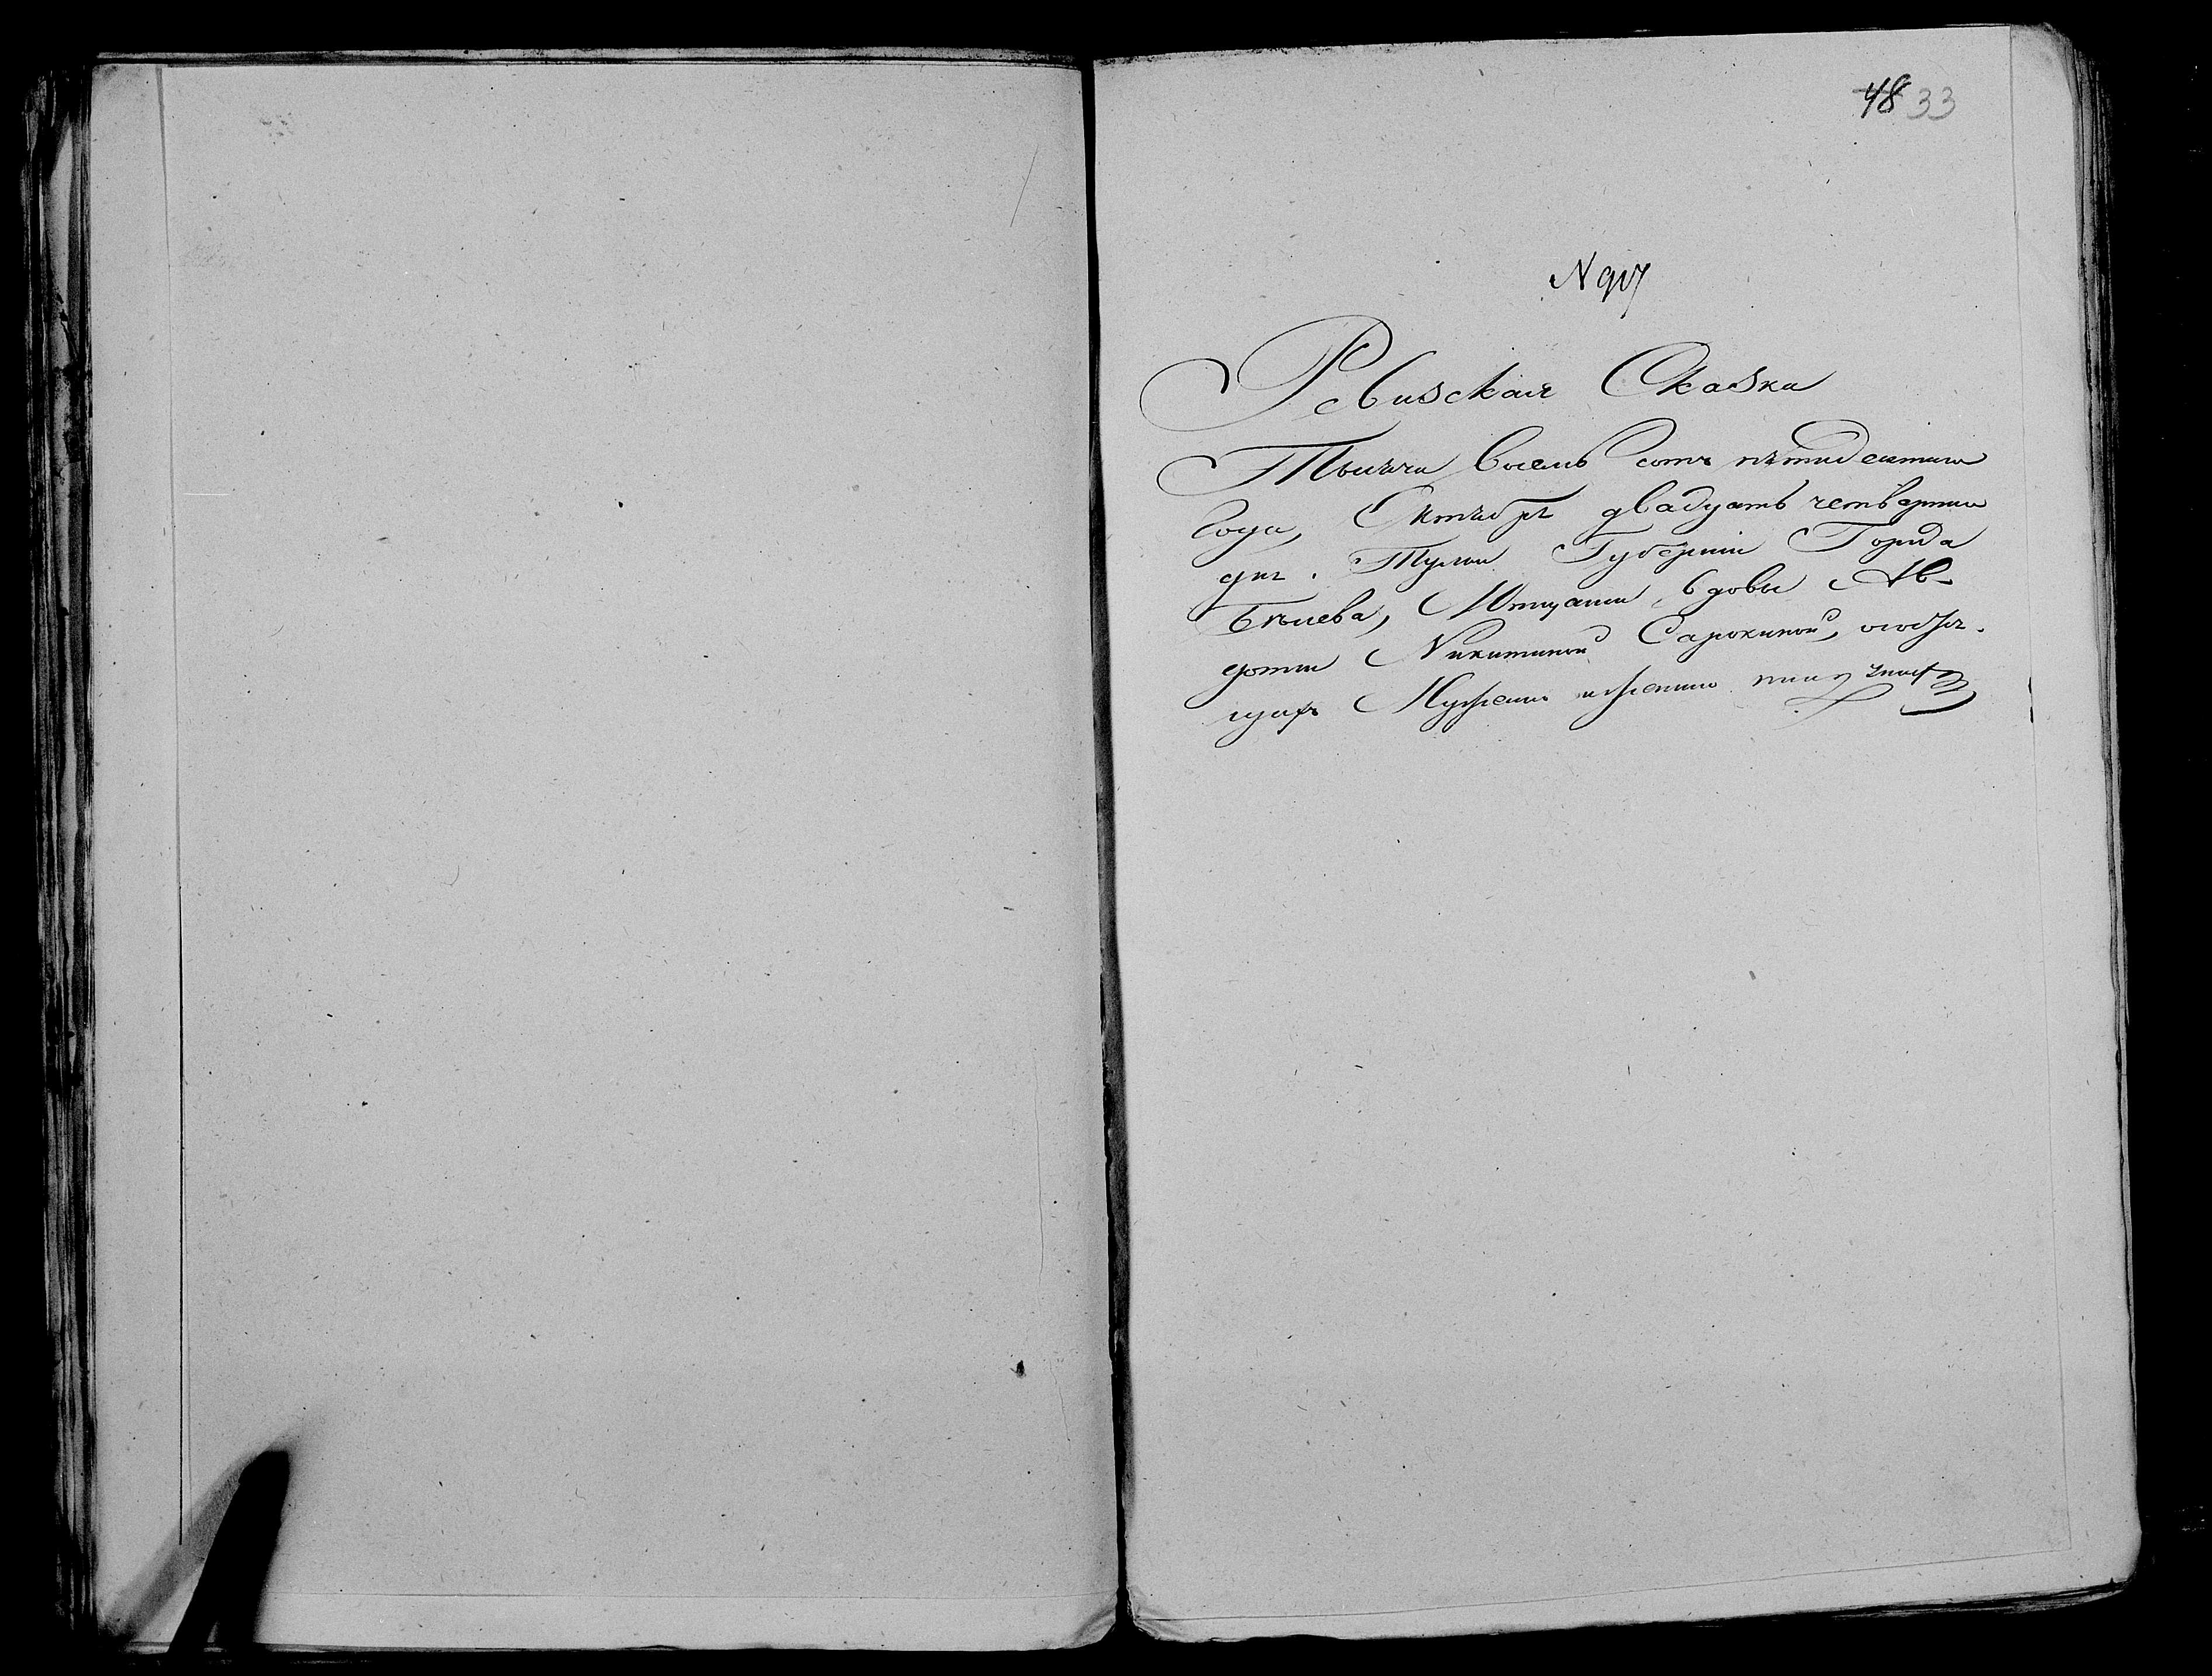 48 33
N 917
Ревизская Сказка
Тысяча восемь сотъ пятидесятаго
года, Октября двадцать четвертаго
дня. Тулской Губернии Города
Белева, Мещанки, вдовы Ав-
дотьи Никитиной Сарокиной, о состоя-
щихъ Мужеска и женска полу